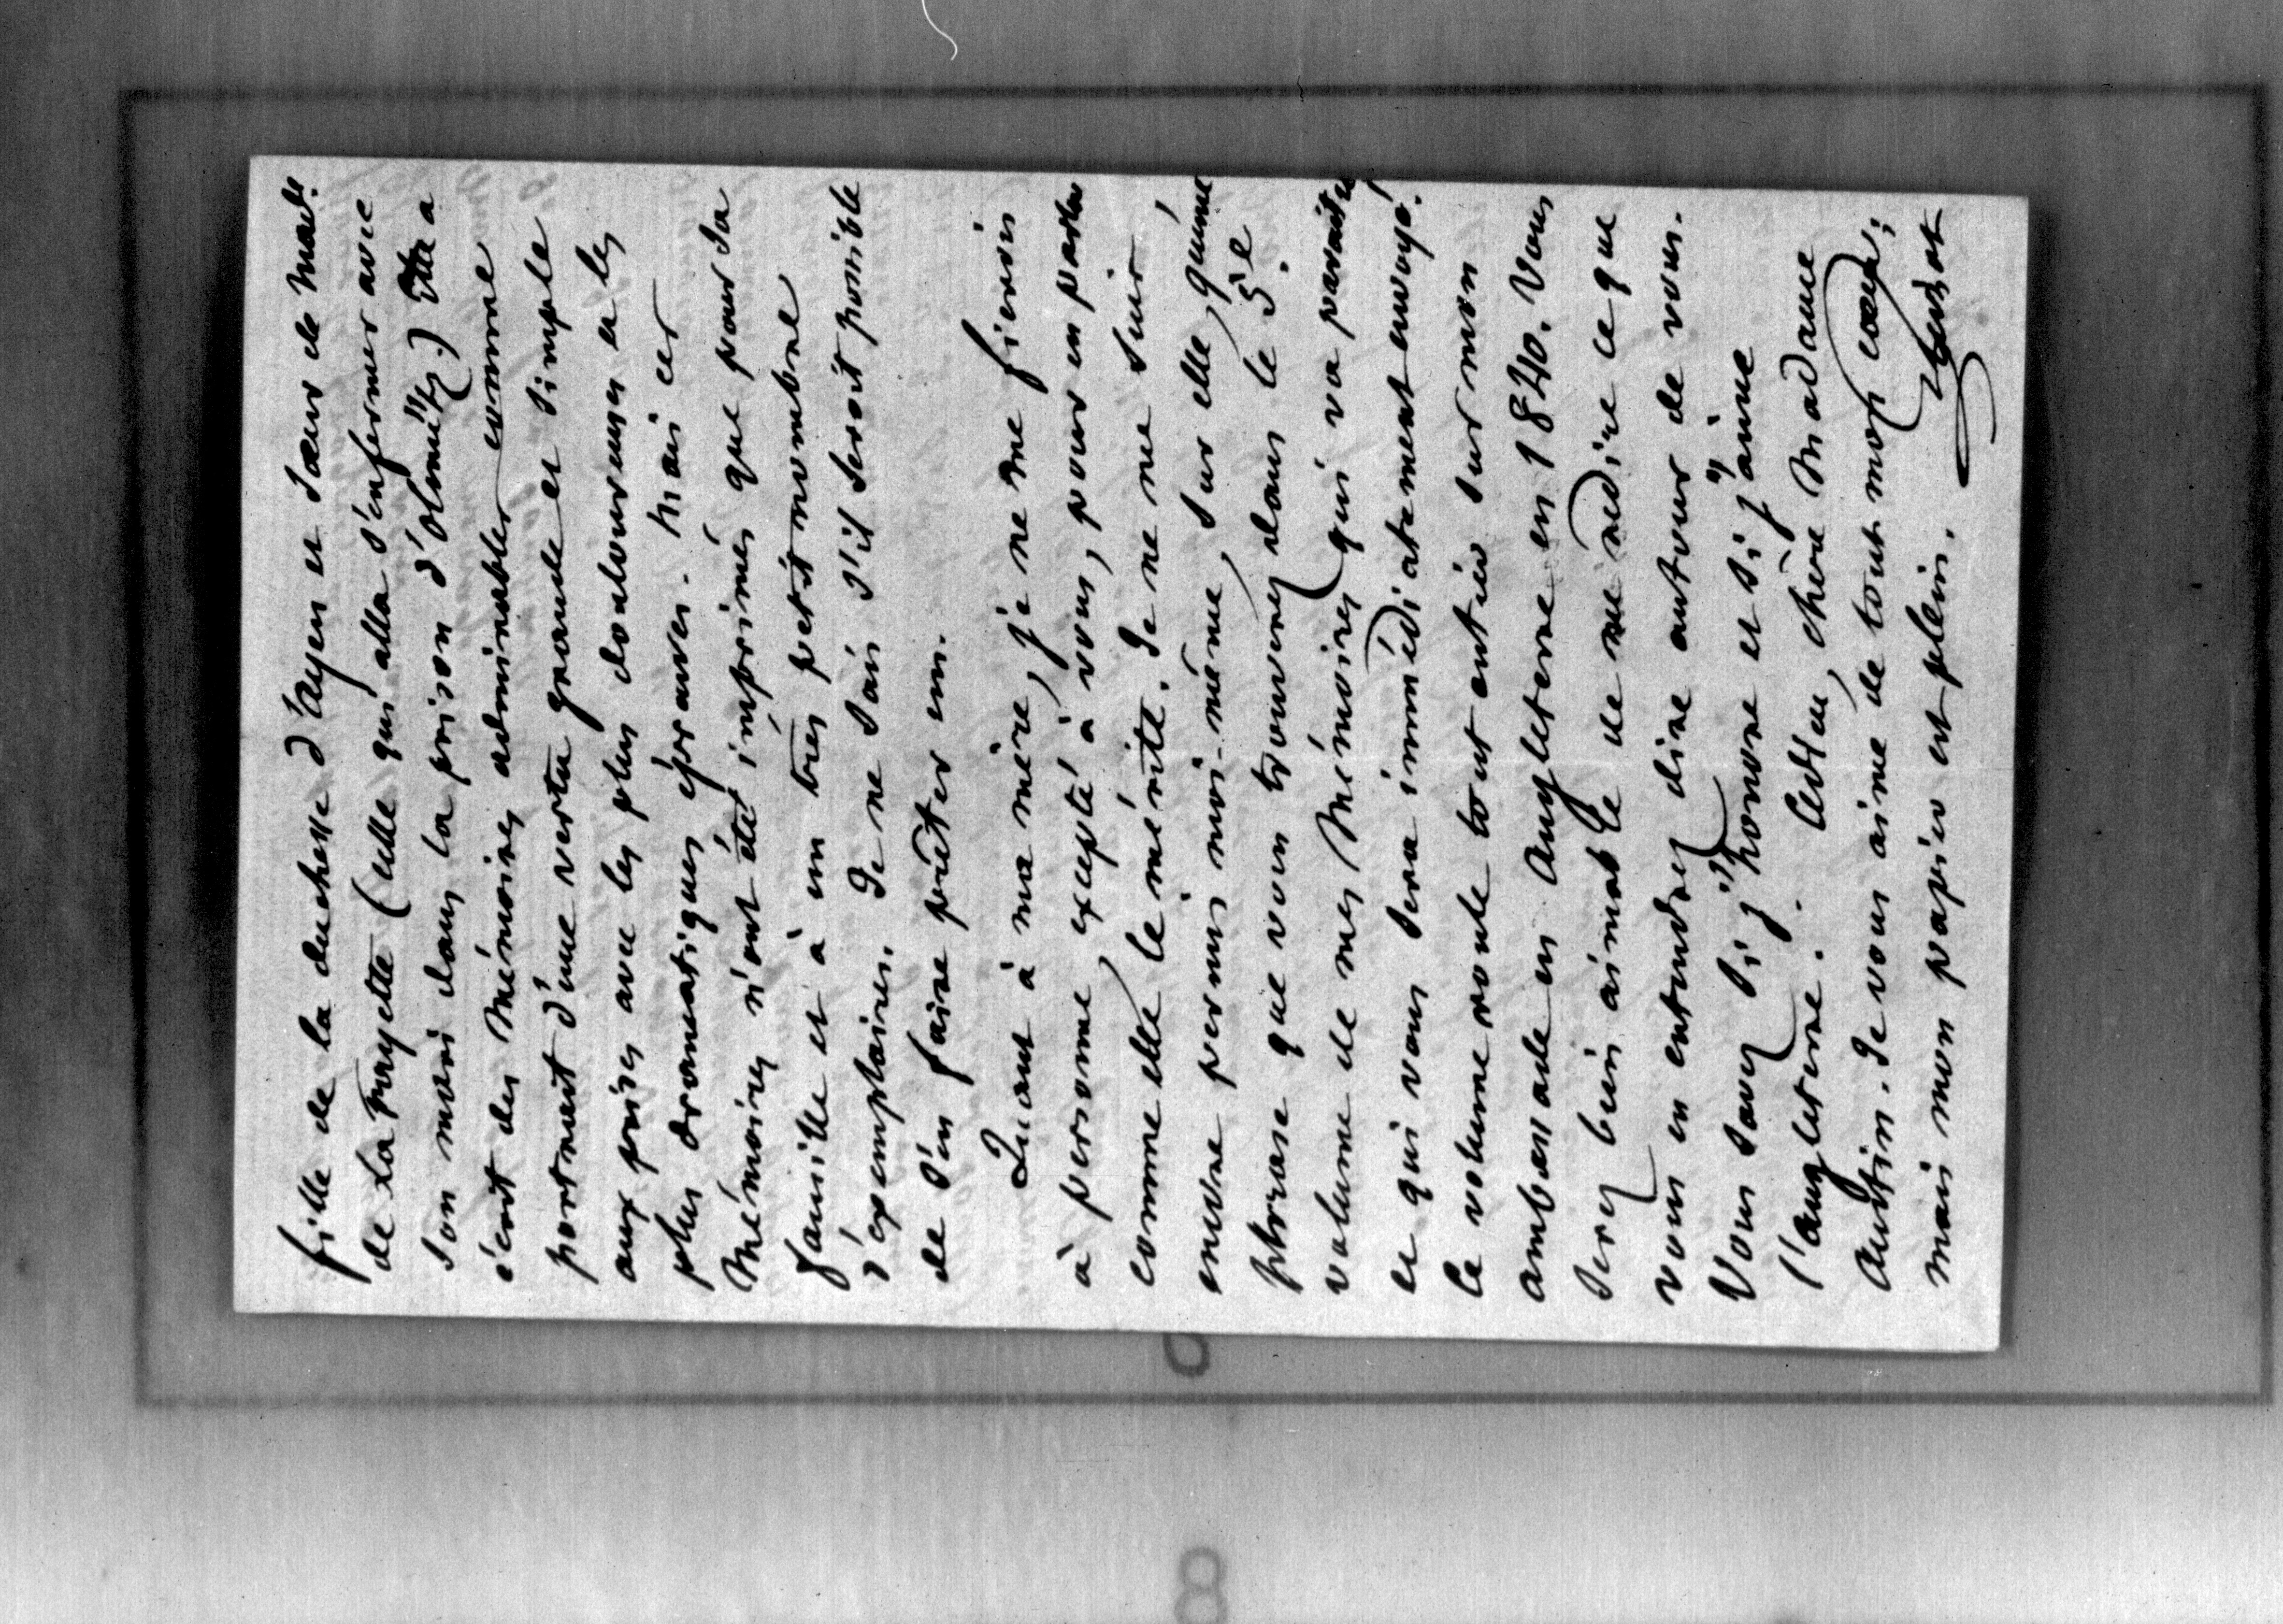 fille de la duchesse d'Ayen et sœur de Made.
de La Fayette (celle qui alla s'enfermer avec
son mari dans la prison d'Olmütz.) Elle a
écrit des Mémoires admirables comme
portrait d'une vertu grande et simple
aux prises avec les plus douloureuses et les
plus dramatiques épreuves. Mais ces
Mémoires n'ont été imprimés que pour sa
famille et à un très petit nombre
d'exemplaires. Je ne sais s'il seroit possible
de s'en faire prêter un.
Quant à ma mère, je ne me fierois
à personne, excepté à vous, pour en parler
comme elle le mérite. Je ne me suis
encore permis moi-même, sur elle, qu'une
phrase que vous trouverez dans le 5e.
volume de mes Mémoires qui va paraitre
et qui vous sera immédiatement envoyé.
Le volume roule tout entier sur mon
ambassade en Angleterre en 1840. Vous
serez bien aimable de me redire ce que
vous en entendrez dire autour de vous.
Vous savez si j'honore et si j'aime
l'Angleterre. Adieu, chère Madame
Austin. Je vous aime de tout mon cœur;
mais mon papier est plein.
Guizot
8